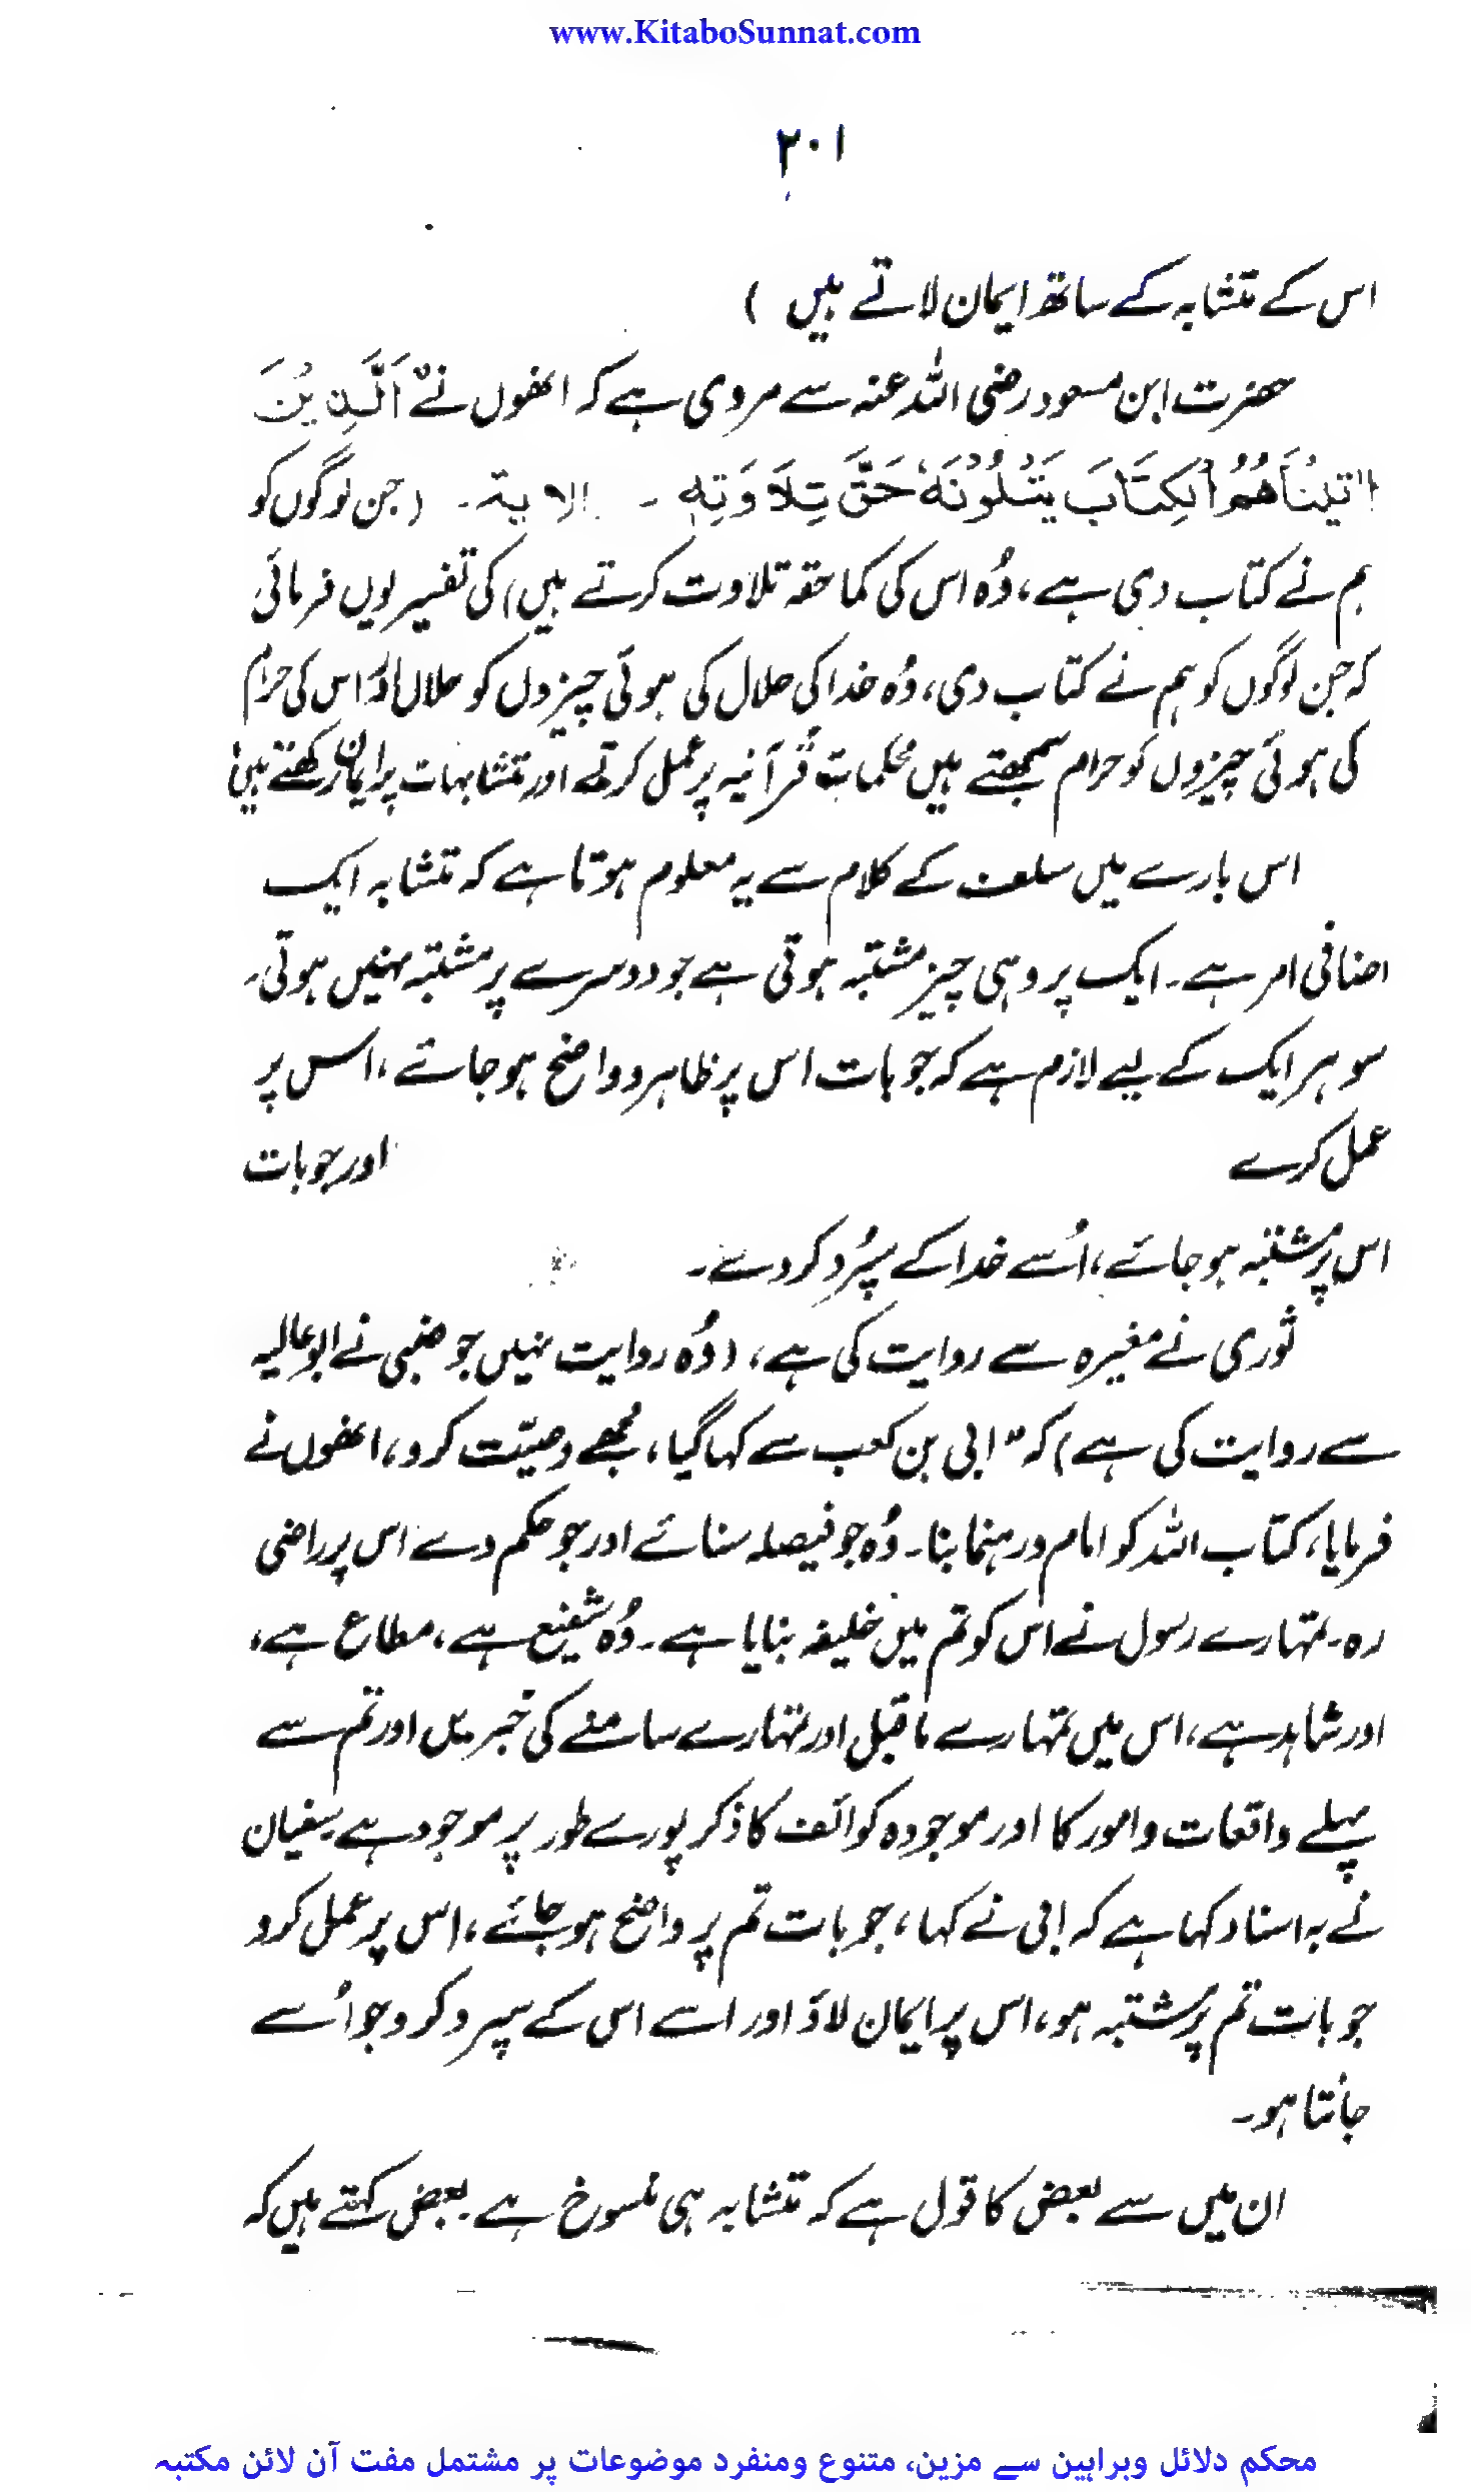 www.KitaboSunnat.com
۲۰۱
اس کے متشابہ کے ساتھ ایمان لاتے ہیں )
حضرت ابن مسعود رضی اللہ عنہ سے مروی ہے کہ انھوں نے "اَلَّذِیْنَ
اٰتَیْنَاھُمُ الْکِتَابَ یَتْلُوْنَہٗ حَقَّ تِلَاوَتِہٖ ۔ الایۃ۔ (جن لوگوں کو
ہم نے کتاب دی ہے، وُہ اس کی کما حقہ تلاوت کرتے ہیں) کی تفسیر یوں فرمائی
کہ جن لوگوں کو ہم نے کتاب دی، وُہ خدا کی حلال کی ہوئی چیزوں کو حلال اور اس کی حرام
کی ہوئی چیزوں کو حرام سمجھتے ہیں محکمات قُرآنیہ پر عمل کرتے اور متشابہات پر ایمان رکھتے ہیں۔
اس بارے میں سلف کے کلام سے یہ معلوم ہوتا ہے کہ متشابہ ایک
اضافی امر ہے۔ ایک پر وہی چیز مشتبہ ہوتی ہے جو دوسرے پر مشتبہ نہیں ہوتی۔
سو ہر ایک کے لیے لازم ہے کہ جو بات اس پر ظاہر و واضح ہو جائے، اس پر
عمل کرے اور جو بات
اس پر مشتبہ ہو جائے، اُسے خدا کے سپُرد کر دے۔
ثوری نے مغیرہ سے روایت کی ہے، (وُہ روایت نہیں جو ضبی نے ابوعالیہ
سے روایت کی ہے) کہ "ابی بن کعب سے کہا گیا، مُجھے وصیّت کرو، انھوں نے
فرمایا، کتاب اللہ کو امام و رہنما بنا۔ وُہ جو فیصلہ سنائے اور جو حکم دے اس پر راضی
رہ۔ تمہارے رسول نے اس کو تم میں خلیفہ بنایا ہے۔ وُہ شفیع ہے، مطاع ہے،
اور شاہد ہے، اس میں تمہارے ماقبل اور تمہارے سامنے کی خبریں اور تم سے
پہلے واقعات و امور کا اور موجودہ کوائف کا ذکر پورے طور پر موجود ہے۔ سفیان
نے بہ اسناد کہا ہے کہ ابی نے کہا، جو بات تم پر واضح ہو جائے، اس پر عمل کرو
جو بات تم پر مشتبہ ہو، اس پر ایمان لاؤ اور اسے اس کے سپرد کر و جو اُسے
جانتا ہو۔
ان میں سے بعض کا قول ہے کہ متشابہ ہی منسوخ ہے۔ بعض کہتے ہیں کہ
محکم دلائل وبراہین سے مزین، متنوع ومنفرد موضوعات پر مشتمل مفت آن لائن مکتبہ